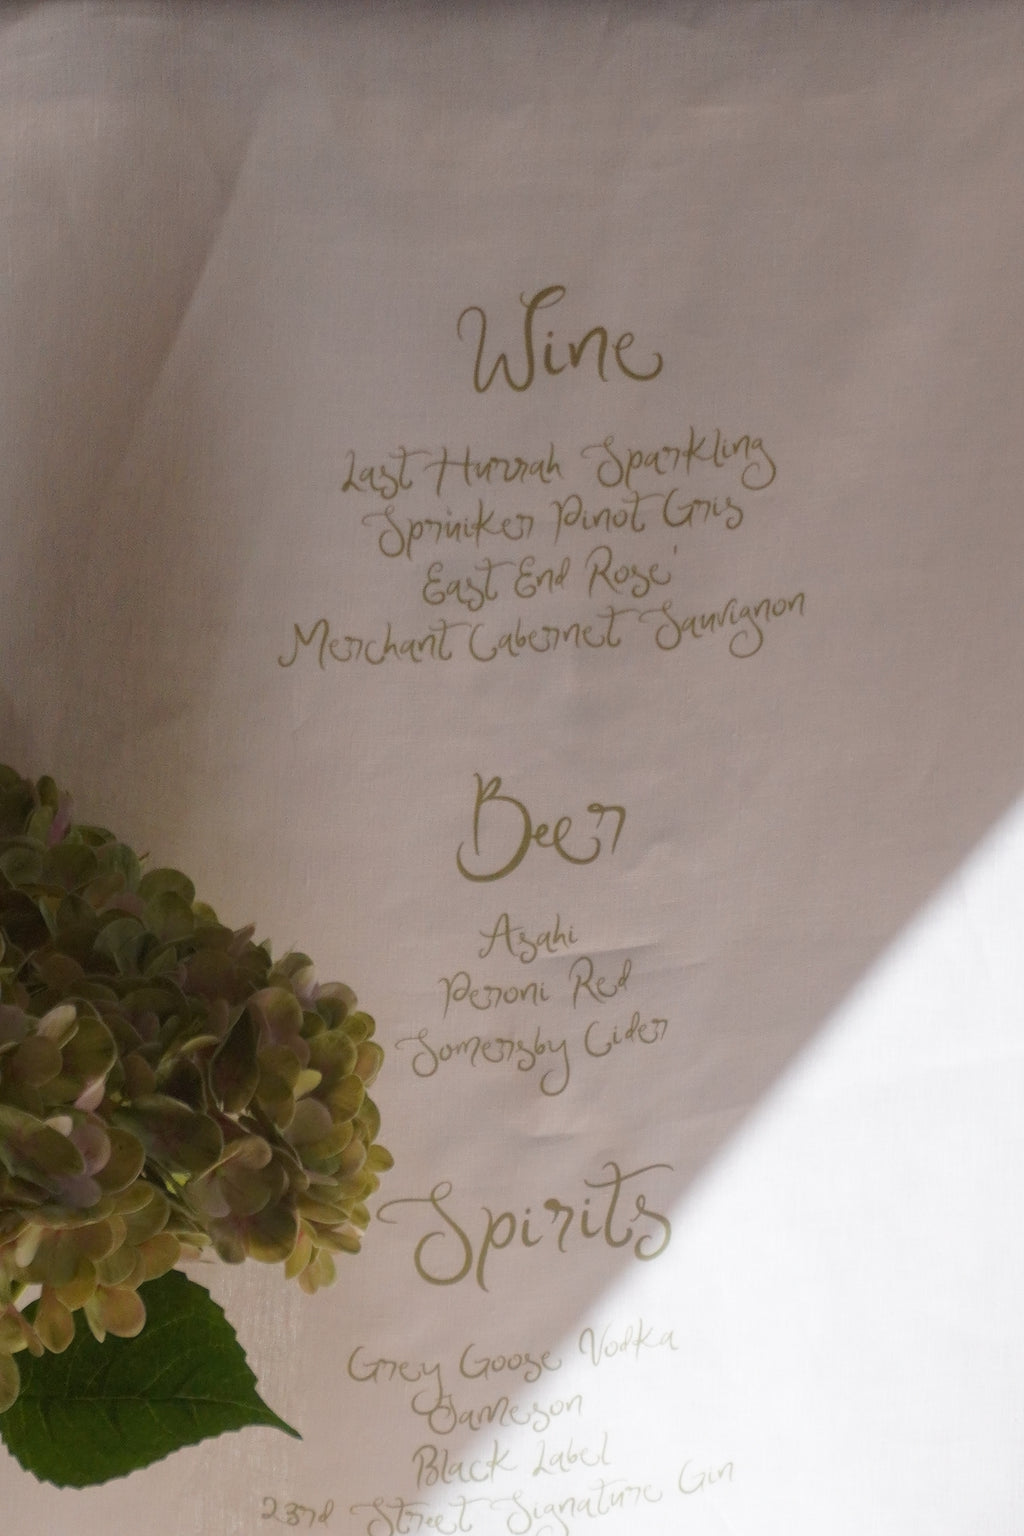 Wine
Last Hurrah Sparkling
Spriniker Pinot Gris
East End Rose'
Merchant Cabernet Sauvignon
Beer
Asahi
Peroni Red
Somersby Cider
Spirits
Grey Goose Vodka
Jameson
Black Label
23rd Street Signature Gin